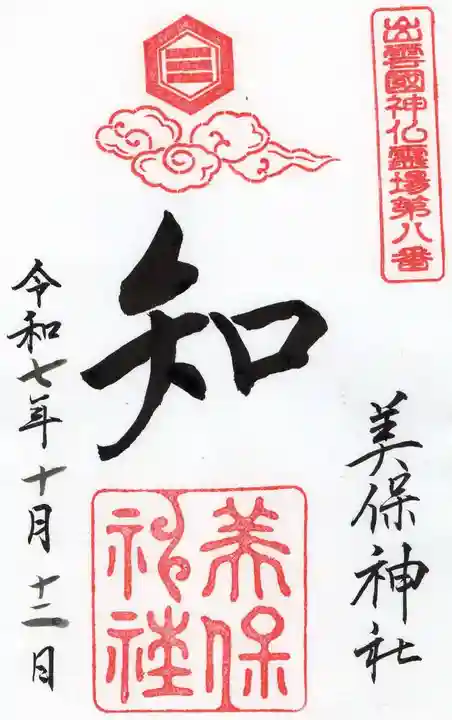 出雲國神仏霊場第八番
美保神社
知
美保
神社
令和七年十月十二日